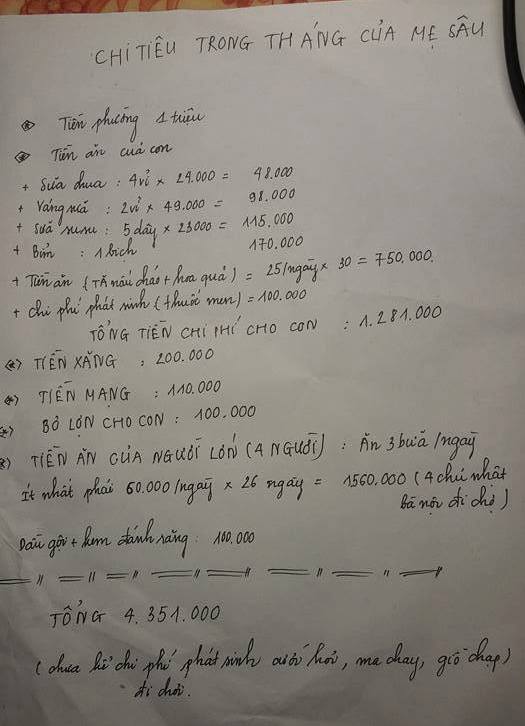 CHI TIÊU TRONG THÁNG CỦA MẸ SÂU
Tiền phường 1 triệu
Tiền ăn của con
+ Sữa chua : 4vỉ x 24.000 = 48.000
+ Váng sữa : 2vỉ x 49.000 = 98.000
+ Sữa susu : 5 dây x 23000 = 115.000
+ Bỉm : 1 bịch 170.000
+ Tiền ăn (TĂ nấu cháo + hoa quả) = 25/ngày x 30 = 750.000.
+ Chi phí phát sinh (thuốc men) = 100.000
TỔNG TIỀN CHI PHÍ CHO CON : 1.281.000
(*) TIỀN XĂNG : 200.000
(*) TIỀN MẠNG : 110.000
(*) BỎ LỢN CHO CON : 100.000
(*) TIỀN ĂN CỦA NGƯỜI LỚN (4 NGƯỜI) : Ăn 3 bữa /ngày
Ít nhất phải 60.000/ngày x 26 ngày = 1560.000 (4 chủ nhật
bà nội đi chợ)
Dầu gội + kem đánh răng : 100.000
TỔNG 4.351.000
(chưa kể chi phí phát sinh cưới hỏi, ma chay, giỗ chạp)
đi chơi.